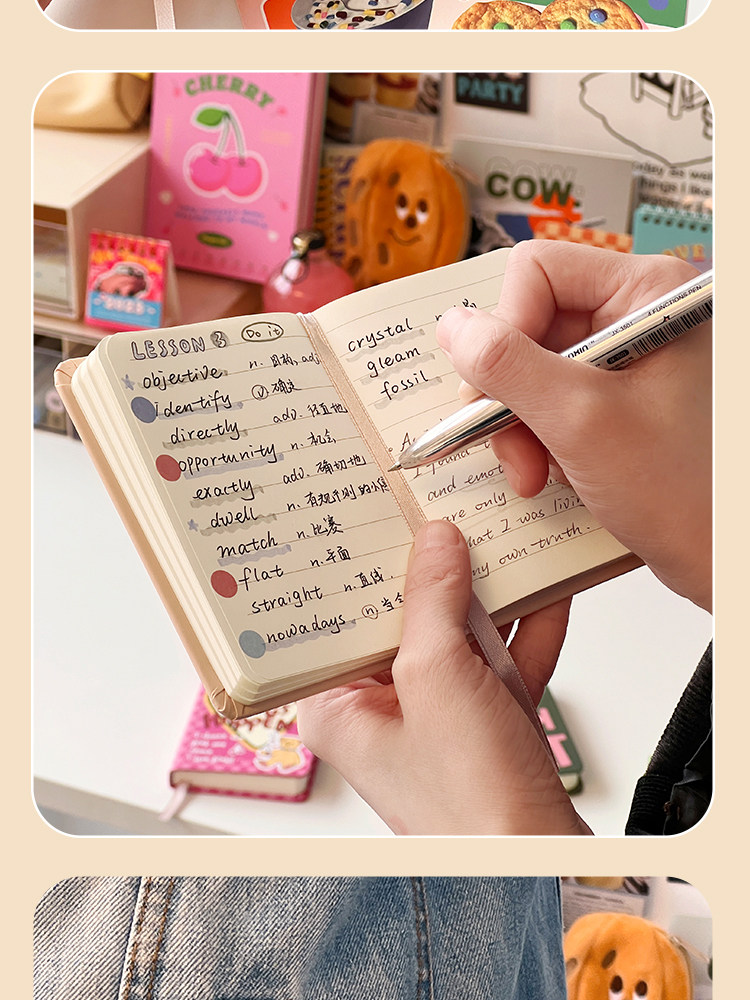 CHERRY
PARTY
COW.
LOVE
2023
4 FUNCTIONS PEN
LESSON 3 Do it
objective n. 目标, adj
identify ⓥ 确定
directly adv. 径直地
opportunity n. 机会
exactly adv. 确切地
dwell n.
match n. 比赛
flat n. 平面
straight n. 直线.
nowadays. ⓝ 当今
crystal
gleam
fossil
I found
and emot
are only
that I was livin
my own truth.